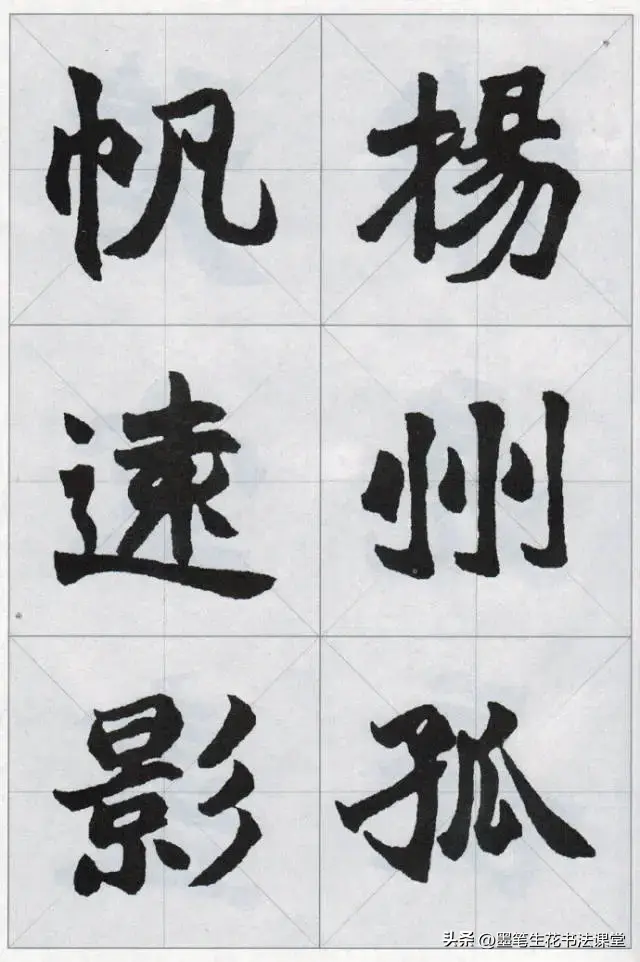 揚州孤
帆遠影
头条 @墨笔生花书法课堂